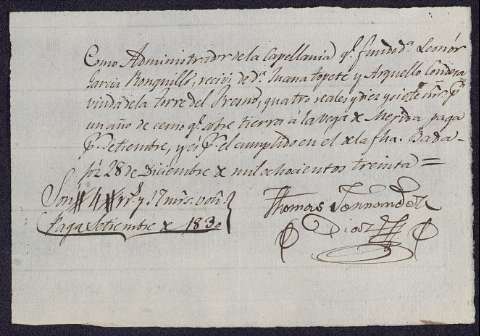 Como Administrador de la Capellania q.e fundo D.a Leonor
Garcia Ronquillo, recivi de D.a Juana Topete y Arguello Condesa
viuda de la Torre del Fresno, quatro reales y diez y siete mrs p.r
un año de censo q.e abre tierra à la vega de Merida paga
p.r Setiembre, y es p.r el cumplido en el de la fha. Bada-
joz 28 de Diciembre de mil ochocientos treinta =
Son 4 rr.s y 17 mrs. von
Paga Setiembre de 1830
Thomas Fernandez
Diaz